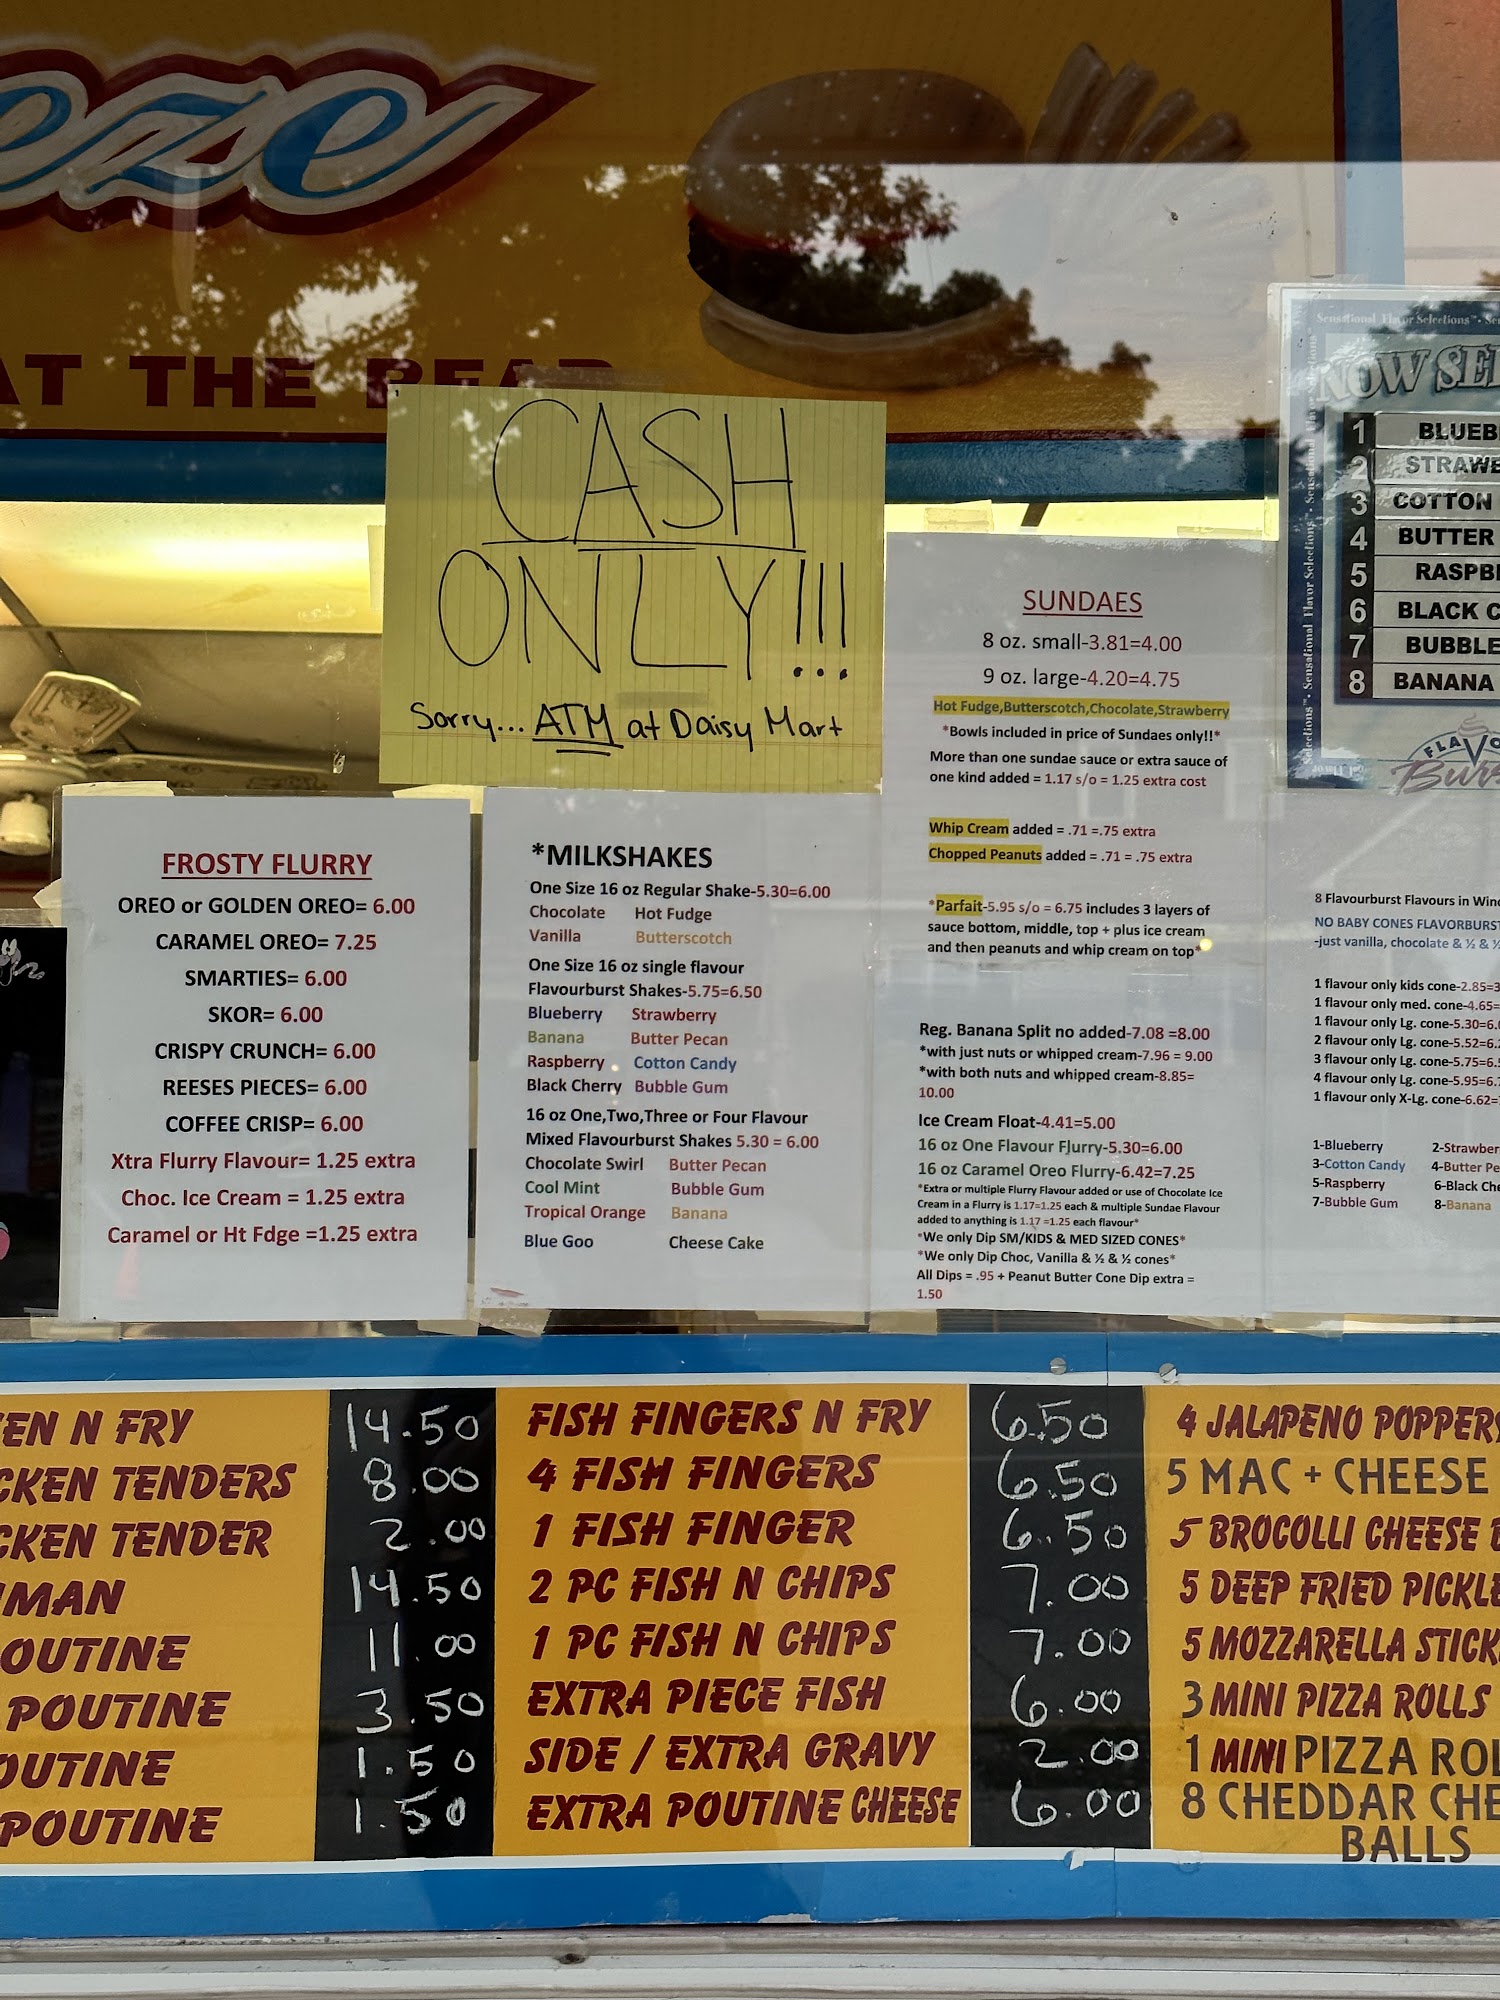 eze
AT THE BEAR
CASH
ONLY!!!
Sorry... ATM at Daisy Mart
FROSTY FLURRY
OREO or GOLDEN OREO= 6.00
CARAMEL OREO= 7.25
SMARTIES= 6.00
SKOR= 6.00
CRISPY CRUNCH= 6.00
REESES PIECES= 6.00
COFFEE CRISP= 6.00
Xtra Flurry Flavour= 1.25 extra
Choc. Ice Cream = 1.25 extra
Caramel or Ht Fdge =1.25 extra
*MILKSHAKES
One Size 16 oz Regular Shake-5.30=6.00
Chocolate Hot Fudge
Vanilla Butterscotch
One Size 16 oz single flavour
Flavourburst Shakes-5.75=6.50
Blueberry Strawberry
Banana Butter Pecan
Raspberry Cotton Candy
Black Cherry Bubble Gum
16 oz One,Two,Three or Four Flavour
Mixed Flavourburst Shakes 5.30 = 6.00
Chocolate Swirl Butter Pecan
Cool Mint Bubble Gum
Tropical Orange Banana
Blue Goo Cheese Cake
SUNDAES
8 oz. small-3.81=4.00
9 oz. large-4.20=4.75
Hot Fudge,Butterscotch,Chocolate,Strawberry
*Bowls included in price of Sundaes only!!*
More than one sundae sauce or extra sauce of
one kind added = 1.17 s/o = 1.25 extra cost
Whip Cream added = .71 =.75 extra
Chopped Peanuts added = .71 = .75 extra
*Parfait-5.95 s/o = 6.75 includes 3 layers of
sauce bottom, middle, top + plus ice cream
and then peanuts and whip cream on top*
Reg. Banana Split no added-7.08 =8.00
*with just nuts or whipped cream-7.96 = 9.00
*with both nuts and whipped cream-8.85=
10.00
Ice Cream Float-4.41=5.00
16 oz One Flavour Flurry-5.30=6.00
16 oz Caramel Oreo Flurry-6.42=7.25
*Extra or multiple Flurry Flavour added or use of Chocolate Ice
Cream in a Flurry is 1.17=1.25 each & multiple Sundae Flavour
added to anything is 1.17 =1.25 each flavour*
*We only Dip SM/KIDS & MED SIZED CONES*
*We only Dip Choc, Vanilla & ½ & ½ cones*
All Dips = .95 + Peanut Butter Cone Dip extra =
1.50
Sensational Flavor Selections™
NOW SE
1 BLUEB
2 STRAWE
3 COTTON
4 BUTTER
5 RASPB
6 BLACK C
7 BUBBLE
8 BANANA
FLAVO
Bur
8 Flavourburst Flavours in Win
NO BABY CONES FLAVORBURST
-just vanilla, chocolate & ½ & ½
1 flavour only kids cone-2.85=3
1 flavour only med. cone-4.65=
1 flavour only Lg. cone-5.30=6.
2 flavour only Lg. cone-5.52=6.
3 flavour only Lg. cone-5.75=6.
4 flavour only Lg. cone-5.95=6.
1 flavour only X-Lg. cone-6.62=
1-Blueberry 2-Strawber
3-Cotton Candy 4-Butter Pe
5-Raspberry 6-Black Che
7-Bubble Gum 8-Banana
EN N FRY 14.50
CKEN TENDERS 8.00
CKEN TENDER 2.00
MAN 14.50
OUTINE 11.00
POUTINE 3.50
OUTINE 1.50
POUTINE 1.50
FISH FINGERS N FRY 6.50
4 FISH FINGERS 6.50
1 FISH FINGER 6.50
2 PC FISH N CHIPS 7.00
1 PC FISH N CHIPS 7.00
EXTRA PIECE FISH 6.00
SIDE / EXTRA GRAVY 2.00
EXTRA POUTINE CHEESE 6.00
4 JALAPENO POPPERS
5 MAC + CHEESE
5 BROCOLLI CHEESE
5 DEEP FRIED PICKLE
5 MOZZARELLA STICK
3 MINI PIZZA ROLLS
1 MINI PIZZA ROL
8 CHEDDAR CHE
BALLS